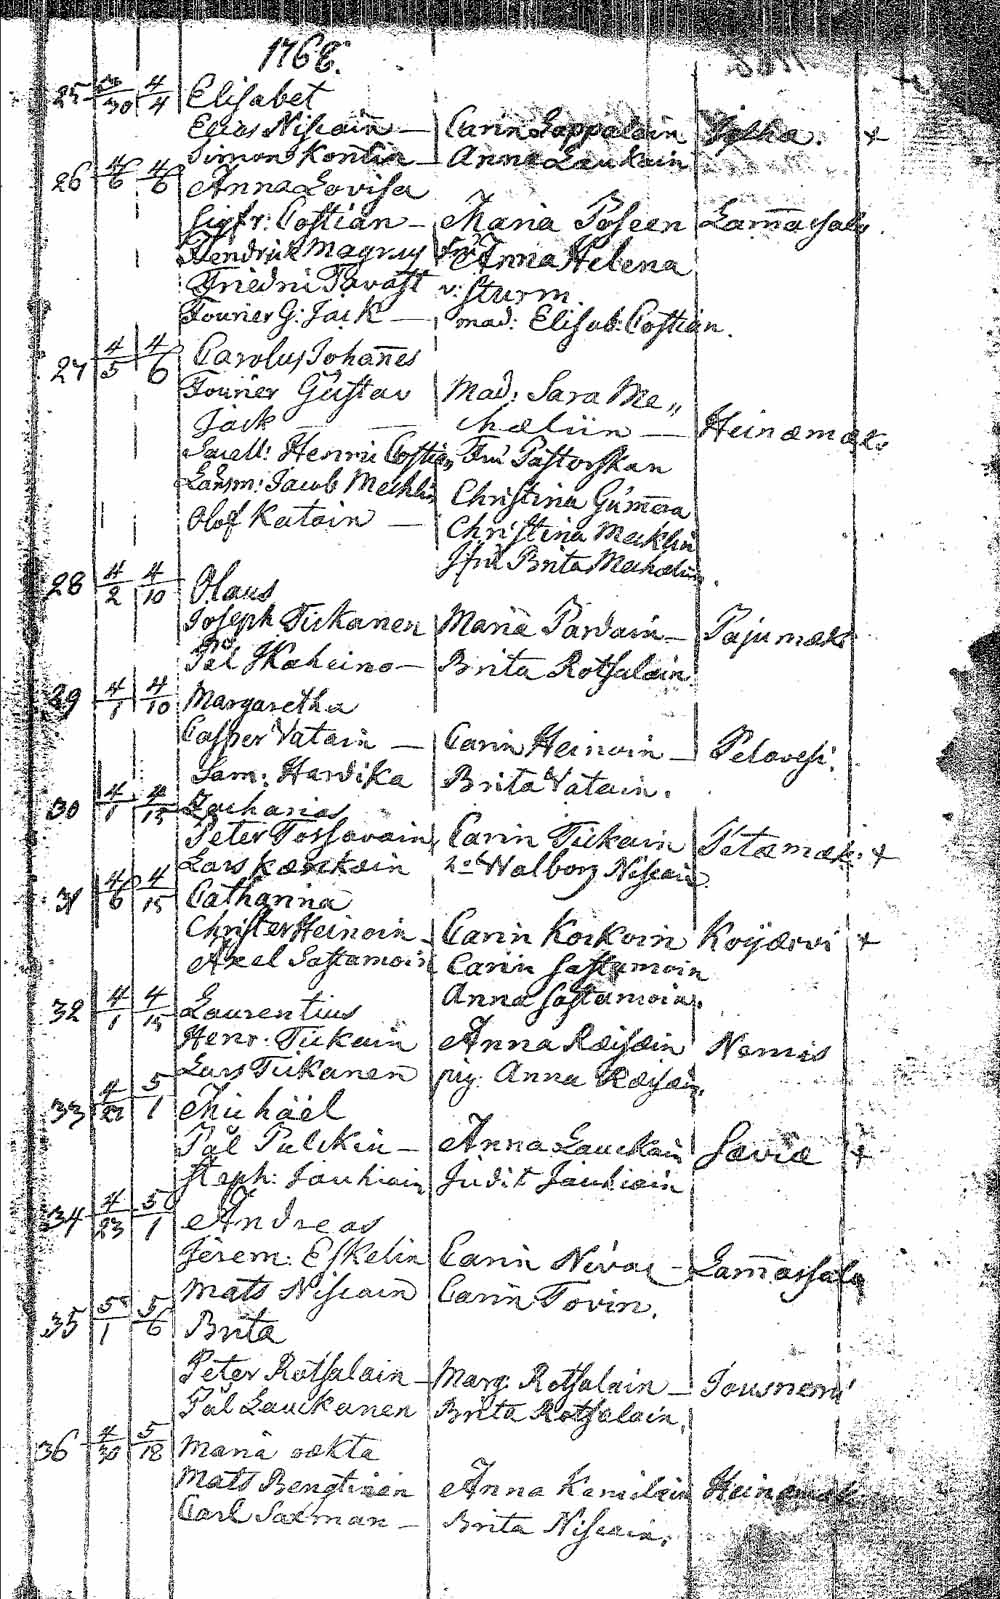 1768.
25 30 4/4 Elisabet
Elias Niscain — Carin Lappalain
Simon Kontin — Anna Laukain
26 4/6 4/6 Anna Lovisa
Sigfr: Costian — Maria Poseen Lamassalo
Hendrik Magnus Anna Helena
Friedri Tavast v: Sturm.
Fourier G: Jack — mad: Elisab: Costian.
27 4/5 4/6 Carolus Johan̄es
Fourier Gustav Mad: Sara Me„
Jack — chæliin — Heinæmæki
Henric Costian Fru Pastorskan
Länsm: Jacob Mechlin Christina Gum̄era
Olof Katain — Christina Mecklin
Jfru Brita Mechælin
28 4/2 4/10 Olaus
Joseph Tiikanen Maria Parvain — Pajumæki
Pål Ikæheino — Brita Rotsalain
29 4/1 4/10 Margaretha
Casper Vatain — Carin Heinoin — Pelavesi.
Sam: Harvika Brita Vatain.
30 4/1 4/15 Zacharias
Peter Tossavain Carin Tiikain +
Lars Kærckæin Walborg Niscain
31 4/6 4/15 Catharina
Christer Heinoin — Carin Koikoin Koijærvi +
Axel Sastamoin Carin Sastamoin
Anna Sastamoin.
32 4/1 4/15 Laurentius
Henr. Tiikain Anna Ræisæin Nemis
Lars Tiikanen pig: Anna Ræisæin.
33 4/22 5/1 Michäel
Pål Pulckin — Anna Lauckain Sæviæ +
Steph: Jauhiain Judit Jauhiain
34 4/23 5/1 Andreas
Jerem: Eskelin Carin — Lamassalo
Mats Niscain Carin Tovin.
35 5/1 5/6 Brita
Peter Rotsalain — Marg: Rotsalain — Jousnemi
Pål Lauckanen Brita Rotsalain.
36 4/30 5/18 Maria oækta
Mats Bengtinen Anna Heinæmæki
Carl Saxman — Brita Niscain.